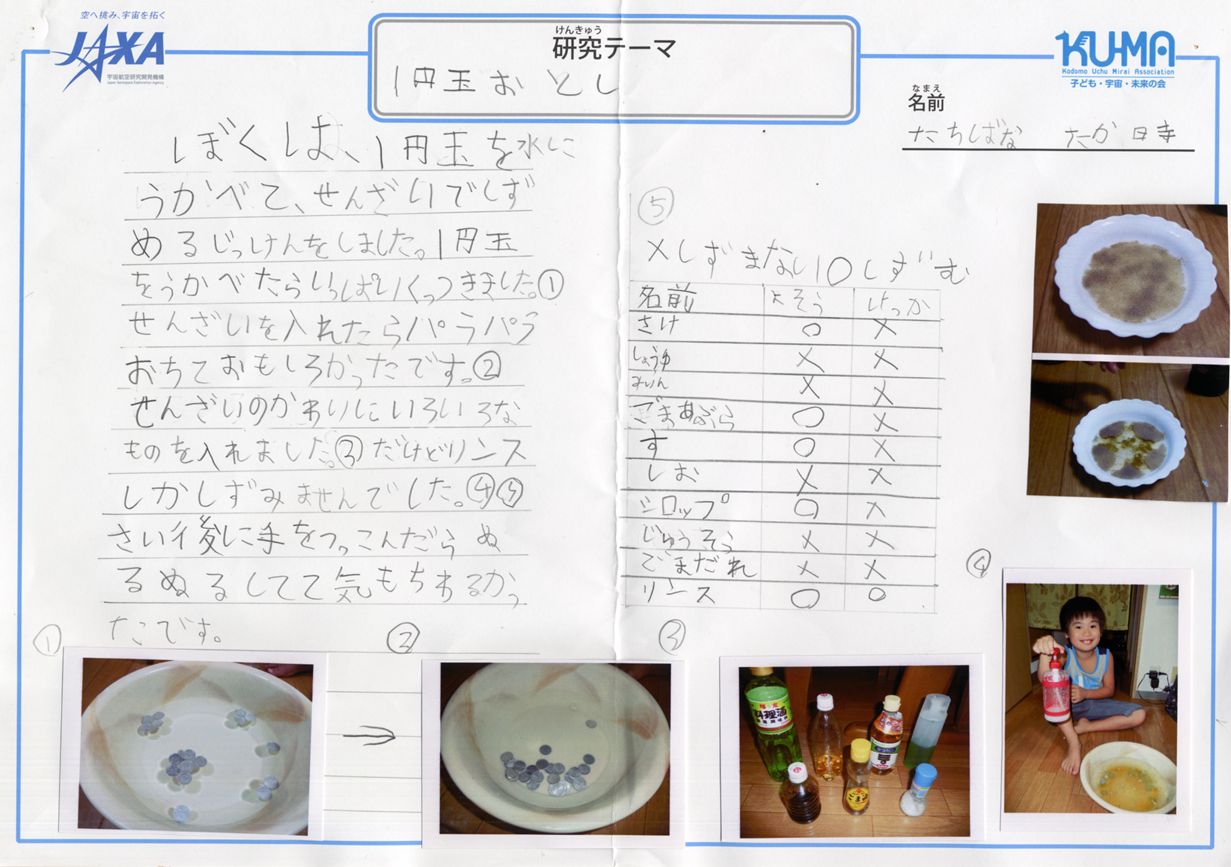 空へ挑み、宇宙を拓く
JAXA
宇宙航空研究開発機構
Japan Aerospace Exploration Agency
けんきゅう
研究テーマ
1円玉おとし
KU-MA
Kodomo Uchu Mirai Association
子ども・宇宙・未来の会
なまえ
名前
たちばな たか日寺
ぼくは、1円玉を水に
うかべて、せんざいでしず
めるじっけんをしました。1円玉
をうかべたらいっぱいくっつきました。①
せんざいを入れたらパラパラ
おちておもしろかったです。②
せんざいのかわりにいろいろな
ものを入れました。③だけどリンス
しかしずみませんでした。④⑤
さい後に手をつっこんだらぬ
るぬるしてて気もちわるかっ
たこです。
⑤
×しずまない○しずむ
名前 よそう けっか
さけ ○ ×
しょうゆ × ×
みりん × ×
ごまあぶら ○ ×
す ○ ×
しお × ×
シロップ ○ ×
じゅうそう × ×
ごまだれ × ×
リンス ○ ○
①
②
③
④
→
料理酒